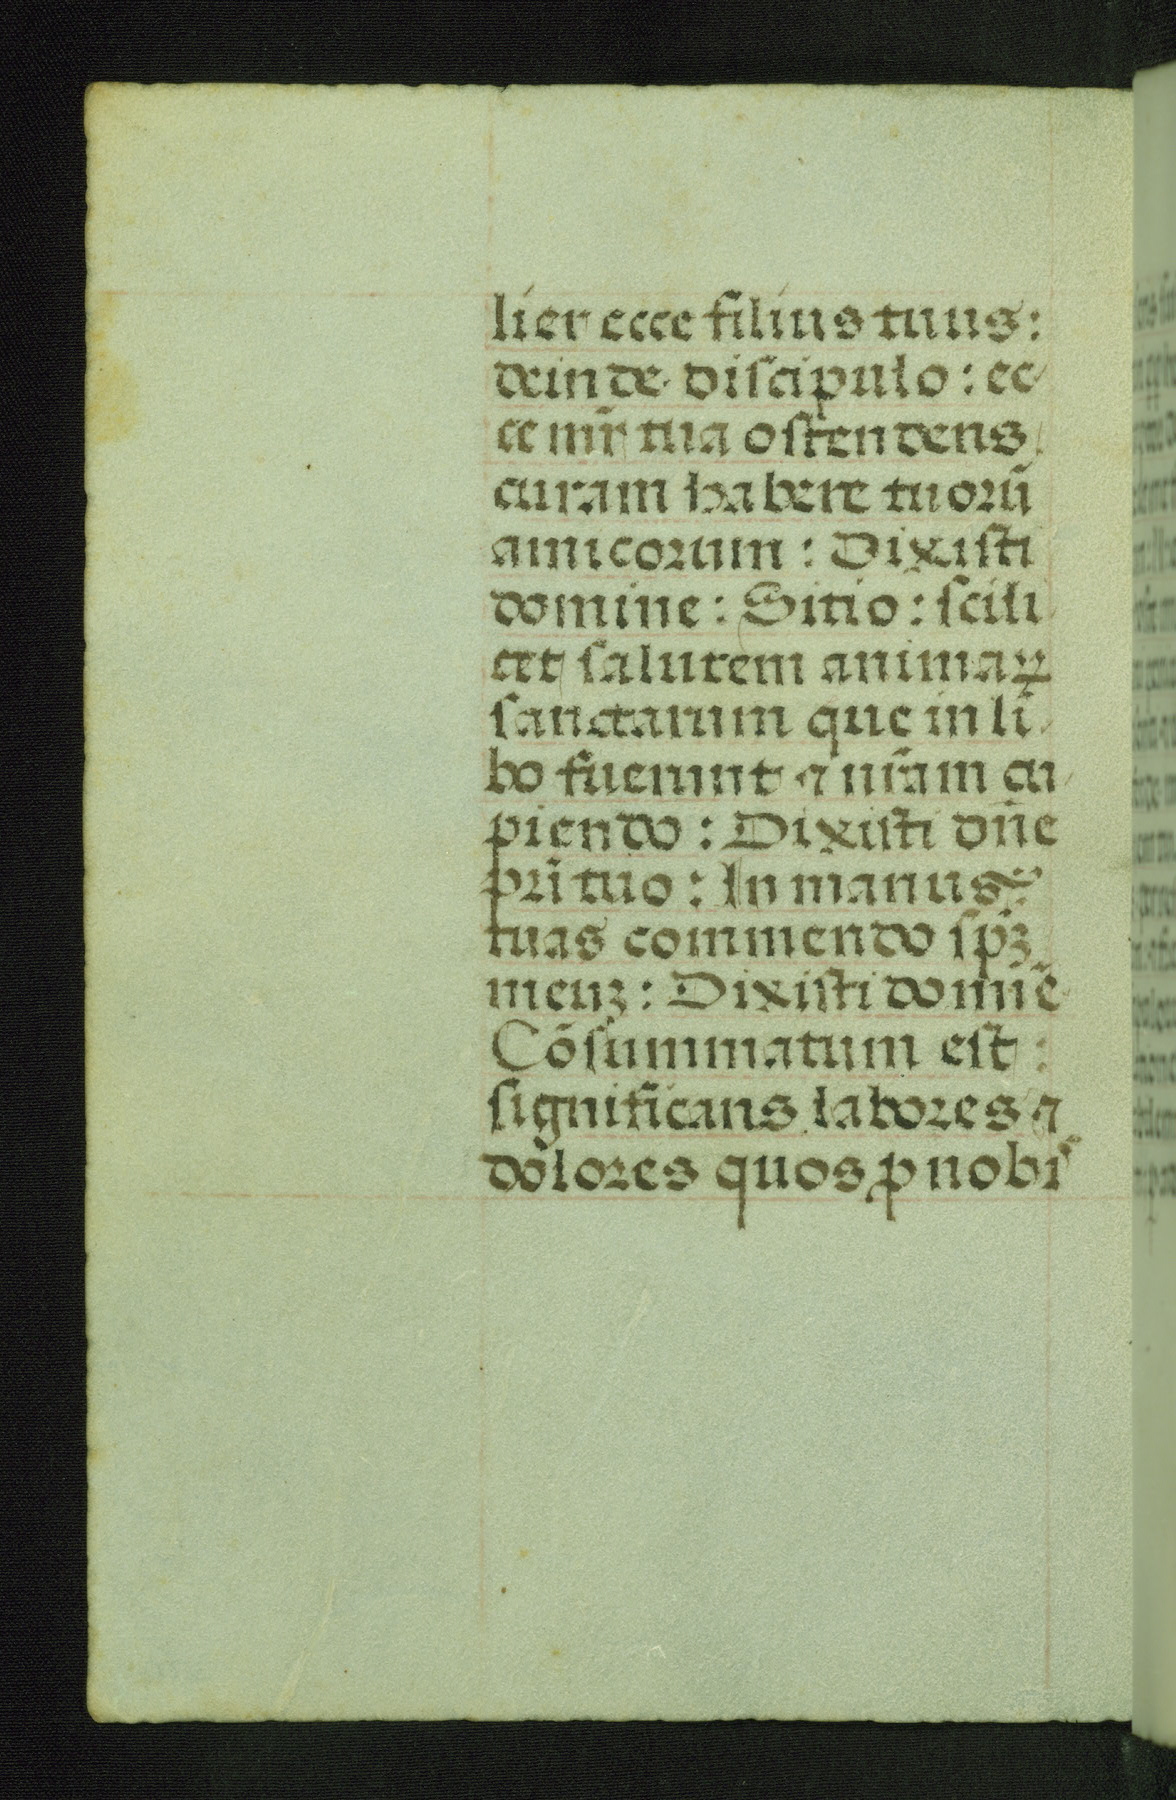 lier ecce filius tuus:
deinde discipulo: ec
ce mr̄ tua ostendens
curam habere tuorū
amicorum: Dixisti
domine: Sitio: scili
cet salutem animaꝝ
sanctarum que in li
bo fuerunt ⁊ nr̄am cu
piendo: Dixisti dn̄e
pr̄i tuo: In manus
tuas commendo sp̄ꝫ
meuꝫ: Dixisti domīe
Cōsummatum est:
significans labores ⁊
dolores quos ꝓ nobis